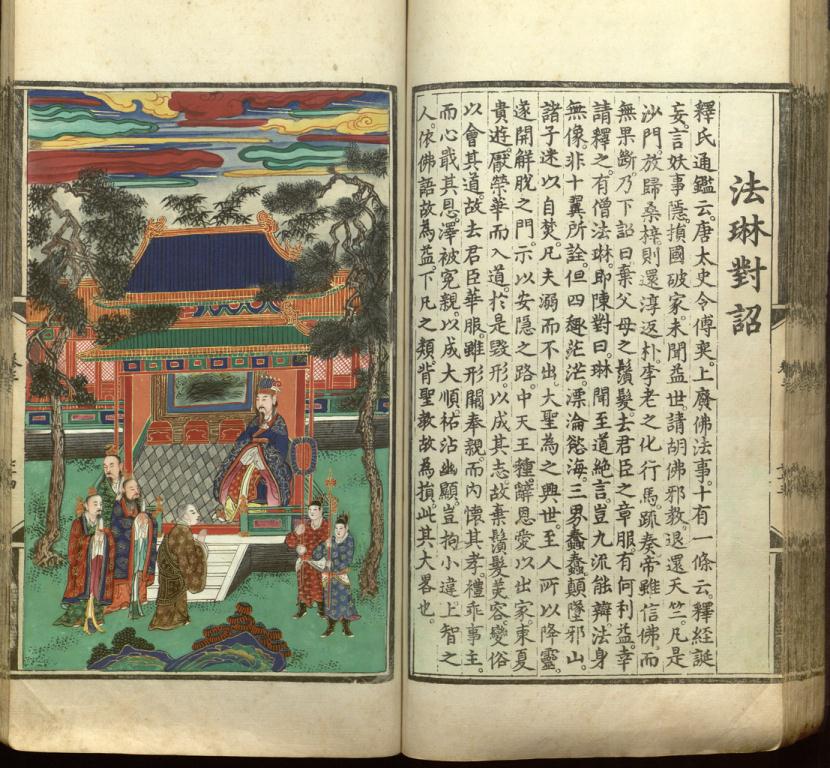 法琳對詔
釋氏通鑑云。唐太史令傅奕。上廢佛法事。十有一條云。釋經誕
妄。言妖事隱。損國破家。未聞益世。請胡佛邪教。退還天竺。凡是
沙門。放歸桑梓。則還淳返朴。李老之化行焉。䟽奏。帝雖信佛。而
無果斷。乃下詔曰。棄父母之鬚髮。去君臣之章服。有何利益。幸
請釋之。有僧法琳。即陳對曰。琳聞至道絶言。豈九流能辯。法身
無像。非十翼所詮。但四趣茫茫。漂淪慾海。三界蠢蠢。顛墜邪山。
諸子迷以自焚。凡夫溺而不出。大聖為之興世。至人所以降靈。
遂開解脫之門。示以安隱之路。中天王種。辭恩愛以出家。東夏
貴遊。厭榮華而入道。於是毀形。以成其志。故棄鬚髮美容。變俗
以會其道。故去君臣華服。雖形闕奉親。而內懷其孝。禮乖事主。
而心戢其恩。澤被冤親。以成大順。祐沾幽顯。豈拘小違。上智之
人。依佛語故為益。下凡之類。背聖教故為損。此其大畧也。